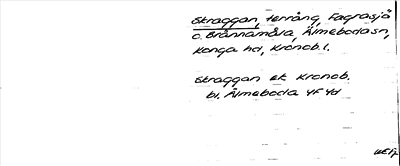 Skraggan, terräng, Fagrasjö
o. Brännamåla, Älmeboda sn,
Konga hd, Kronob. l.
Skraggan ek Kronob.
bl. Älmeboda 4F 4d